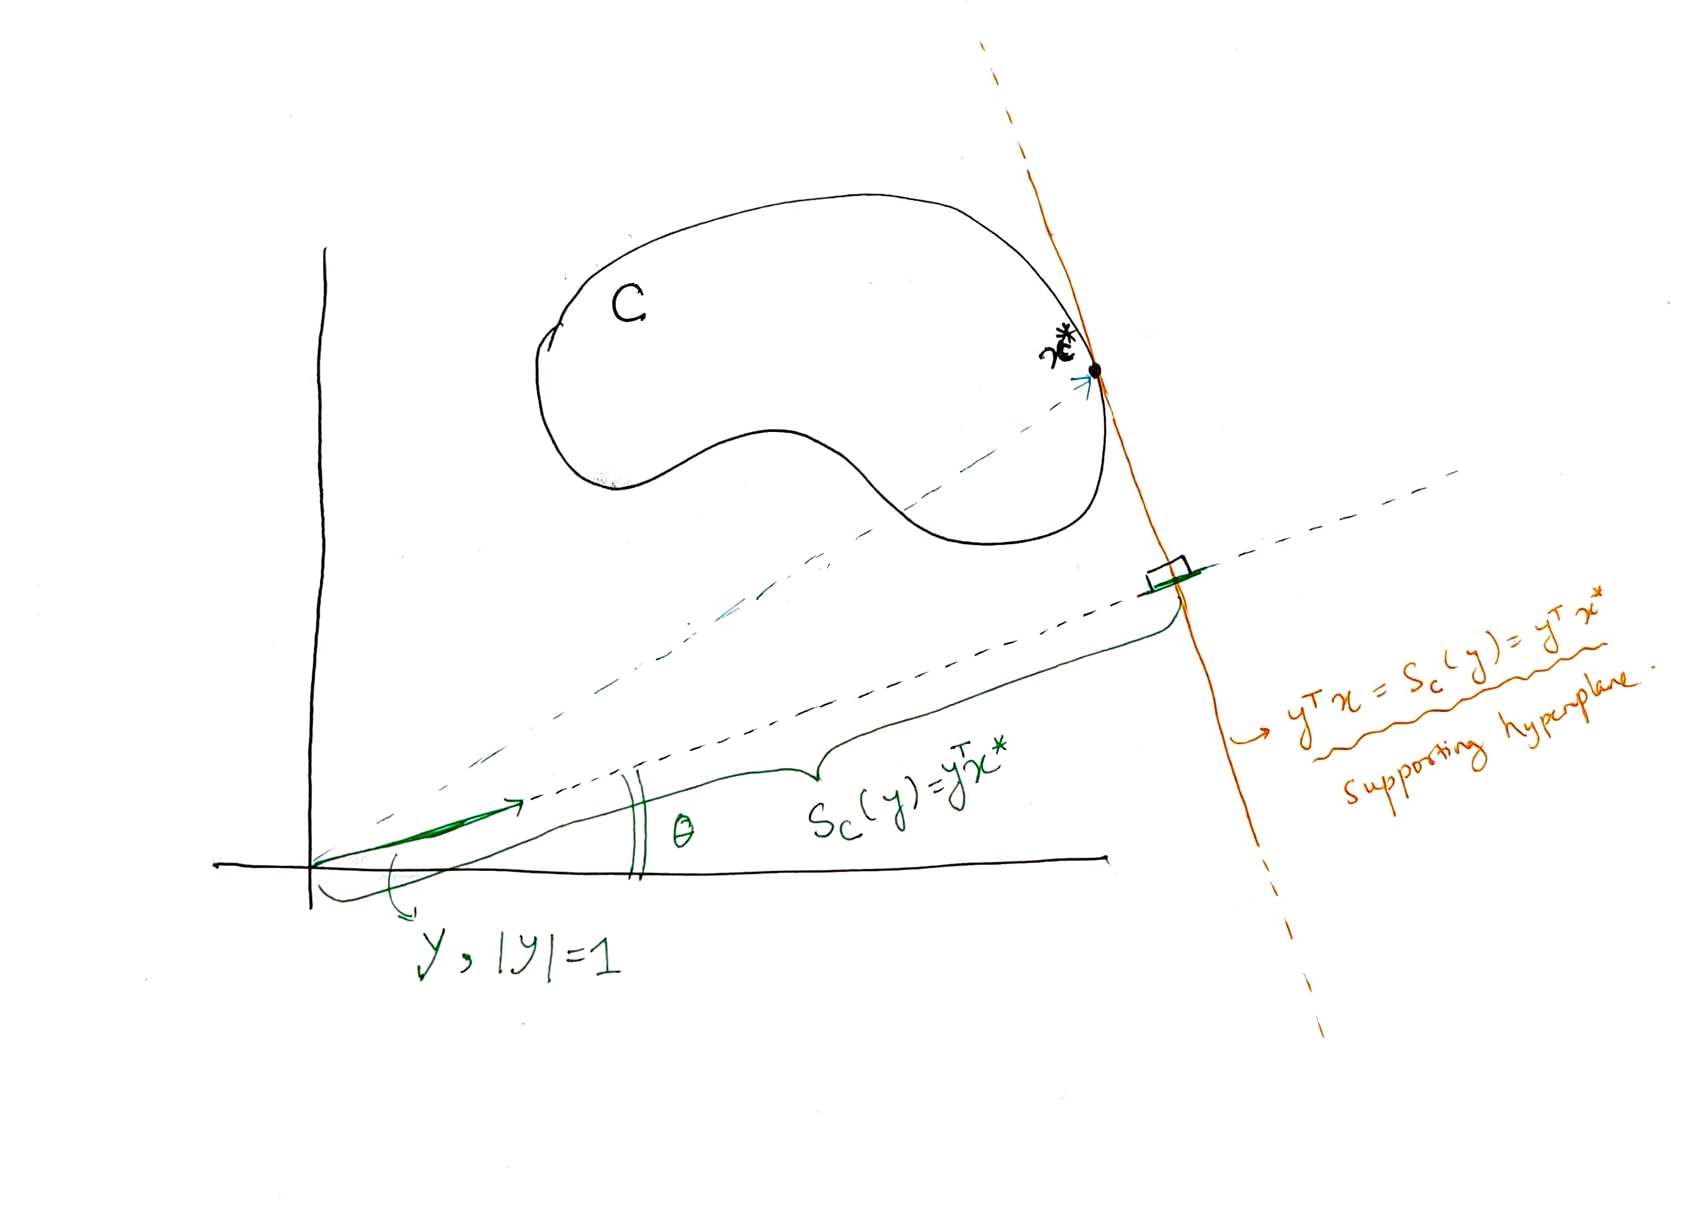 C
x*
yᵀx = S_C(y) = yᵀx*
supporting hyperplane.
S_C(y) = yᵀx*
θ
y, |y|=1